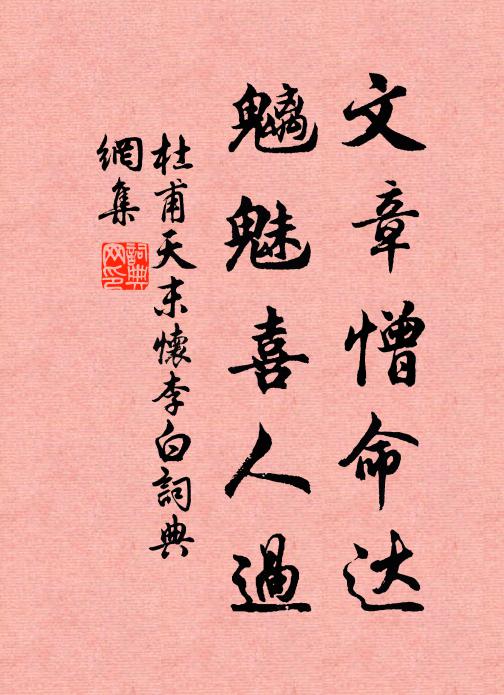 文章憎命达
魑魅喜人過
杜甫天末懷李白詞典
網集
詞典
网印